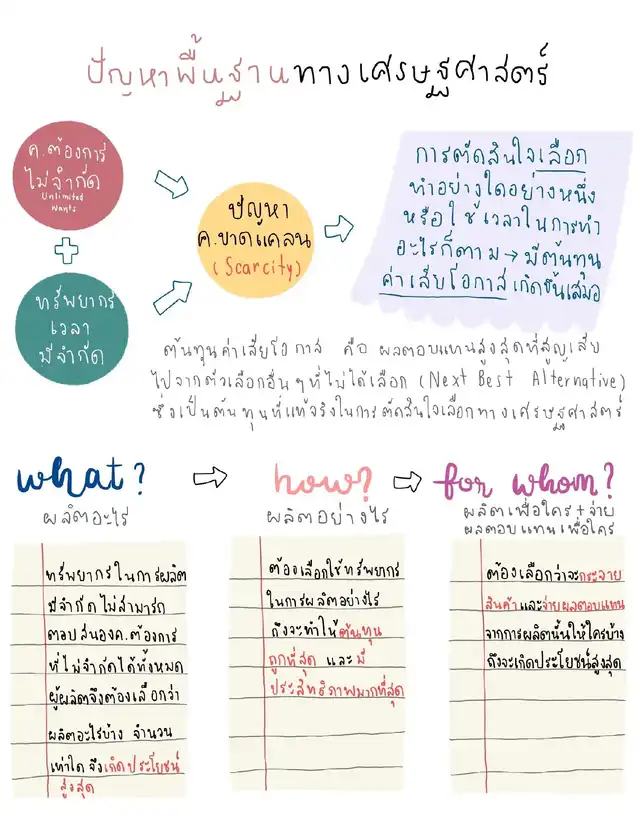 ปัญหาพื้นฐานทางเศรษฐศาสตร์
ค.ต้องการ
ไม่จำกัด
Unlimited
Wants
ทรัพยากร
เวลา
มีจำกัด
ปัญหา
ค.ขาดแคลน
(Scarcity)
การตัดสินใจเลือก
ทำอย่างใดอย่างหนึ่ง
หรือใช้เวลาในการทำ
อะไรก็ตาม → มีต้นทุน
ค่าเสียโอกาสเกิดขึ้นเสมอ
ต้นทุนค่าเสียโอกาส คือ ผลตอบแทนสูงสุดที่สูญเสีย
ไปจากตัวเลือกอื่นๆที่ไม่ได้เลือก (Next Best Alternative)
ซึ่งเป็นต้นทุนที่แท้จริงในการตัดสินใจเลือกทางเศรษฐศาสตร์
what?
ผลิตอะไร
ทรัพยากรในการผลิต
มีจำกัดไม่สามารถ
ตอบสนองค.ต้องการ
ที่ไม่จำกัดได้ทั้งหมด
ผู้ผลิตจึงต้องเลือกว่า
ผลิตอะไรบ้าง จำนวน
เท่าใด จึงเกิดประโยชน์
สูงสุด
how?
ผลิตอย่างไร
ต้องเลือกใช้ทรัพยากร
ในการผลิตอย่างไร
ถึงจะทำให้ต้นทุน
ถูกที่สุด และมี
ประสิทธิภาพมากที่สุด
for whom?
ผลิตเพื่อใคร+จ่าย
ผลตอบแทนเพื่อใคร
ต้องเลือกว่าจะกระจาย
สินค้าและจ่ายผลตอบแทน
จากการผลิตนั้นให้ใครบ้าง
ถึงจะเกิดประโยชน์สูงสุด